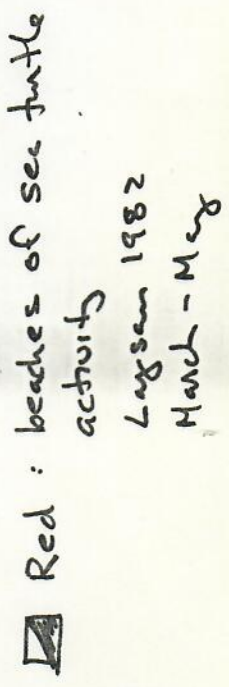 Red : beaches of sea turtle
activity
Laysan 1982
March - May